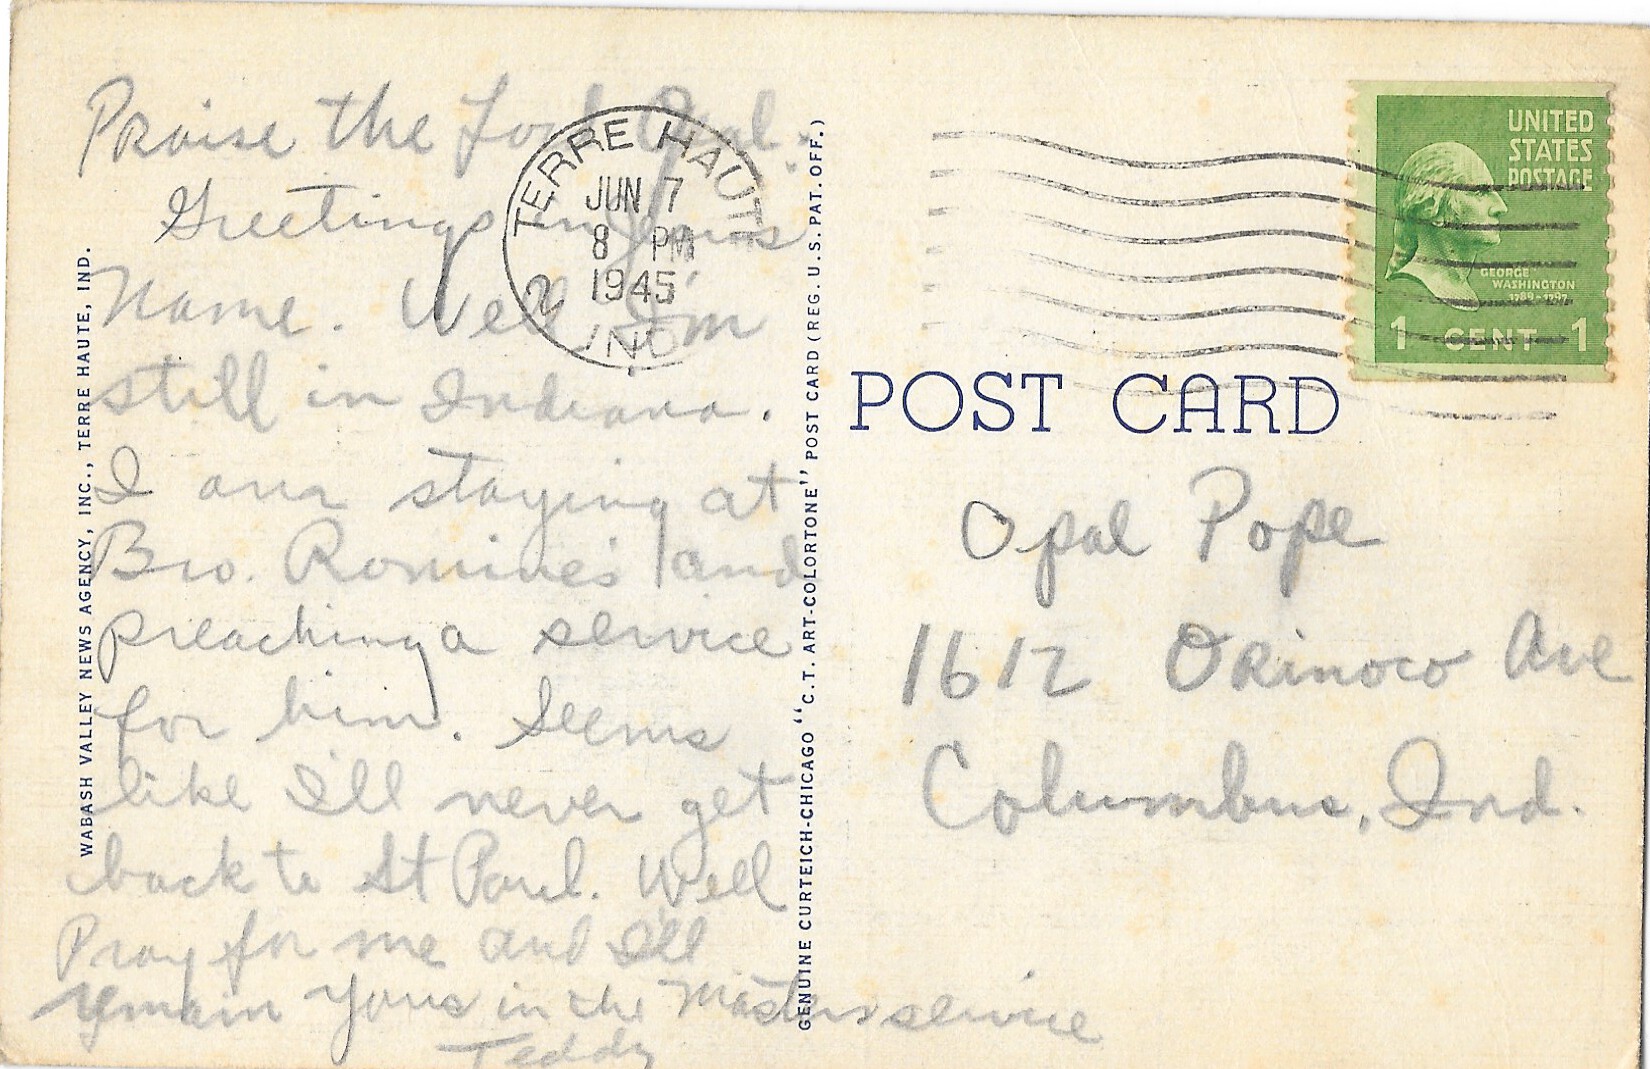 Praise the Lord Opal.
Greetings in Jesus
Name. Well I'm
still in Indiana.
I am staying at
Bro. Romine's and
preaching a service
for him. Seems
like I'll never get
back to St Paul. Well
Pray for me and I'll
remain Yours in the Masters service
Teddy
TERRE HAUTE
JUN 7
8 PM
1945
2 IND
UNITED
STATES
POSTAGE
GEORGE
WASHINGTON
1789-1797
1 CENT 1
POST CARD
Opal Pope
1612 Orinoco Ave
Columbus, Ind.
WABASH VALLEY NEWS AGENCY, INC., TERRE HAUTE, IND.
GENUINE CURTEICH-CHICAGO "C.T. ART-COLORTONE" POST CARD (REG. U.S. PAT. OFF.)